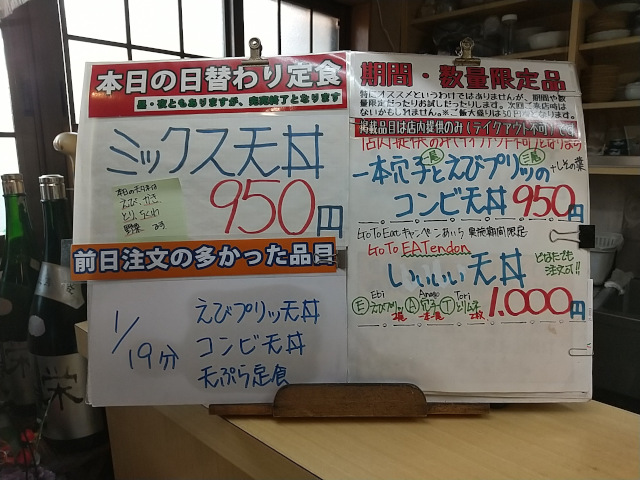 本日の日替わり定食
昼・夜ともありますが、完売終了となります
ミックス天丼
本日の天ぷらは
えび、かき
とり、ちくわ
野菜
950円
前日注文の多かった品目
1/19分
えびプリッ天丼
コンビ天丼
天ぷら定食
期間・数量限定品
特にオススメというわけではありませんが、期間や数
量限定だったりお試しだったりします。次回ご来店時は
ないかもしれません。※ご飯大盛りは50円
掲載品目は店内提供のみ(テイクアウト不可)
店内提供のみ(テイクアウト不可)となります
一本穴子とえびプリッの
一尾 三尾 +しその葉
コンビ天丼 950円
GoToEatキャンペーンあいち 実施期間限定
GoTo EATendon
いいいい天丼
どなたでも
注文可!!
Ebi Anago Tori
Ⓔえびプリッ Ⓐ穴子 Ⓣとりムネ
2尾 一本 2枚
1.000円